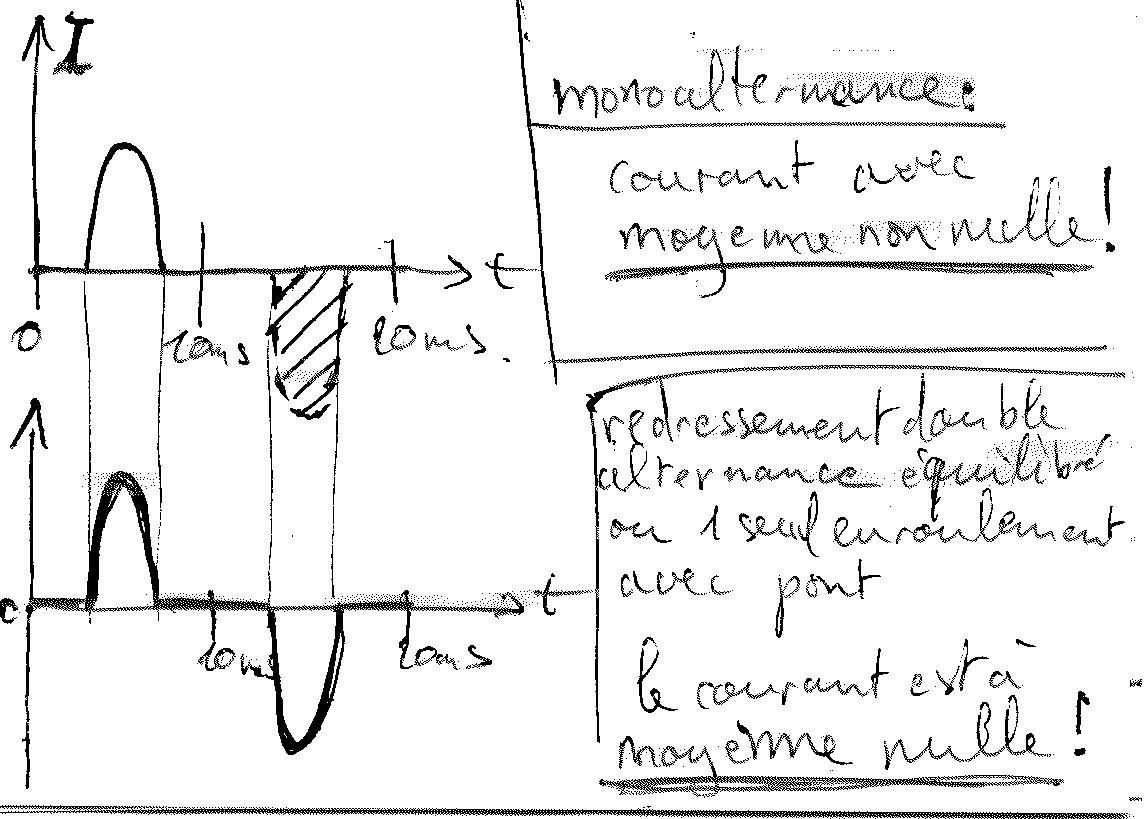 I
monoalternance:
courant avec
moyenne non nulle!
t
0
10ms
20ms.
redressement double
alternance équilibré
ou 1 seul enroulement
avec pont
t
10ms
20ms
le courant est à
moyenne nulle!